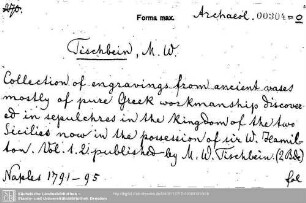 Forms max.
Archaeol.
Tischbein, M. W.
Collection of engravings from ancient vases
mostly of pure Greek workmanship discover-
ed in sepulchres in the kingdom of the two
Sicilies now in the possession of sir W. Hamil-
ton. Vol. 1. 2. published by M. W. Tischbein. (2 Bde)
Naples 1791-95 fol